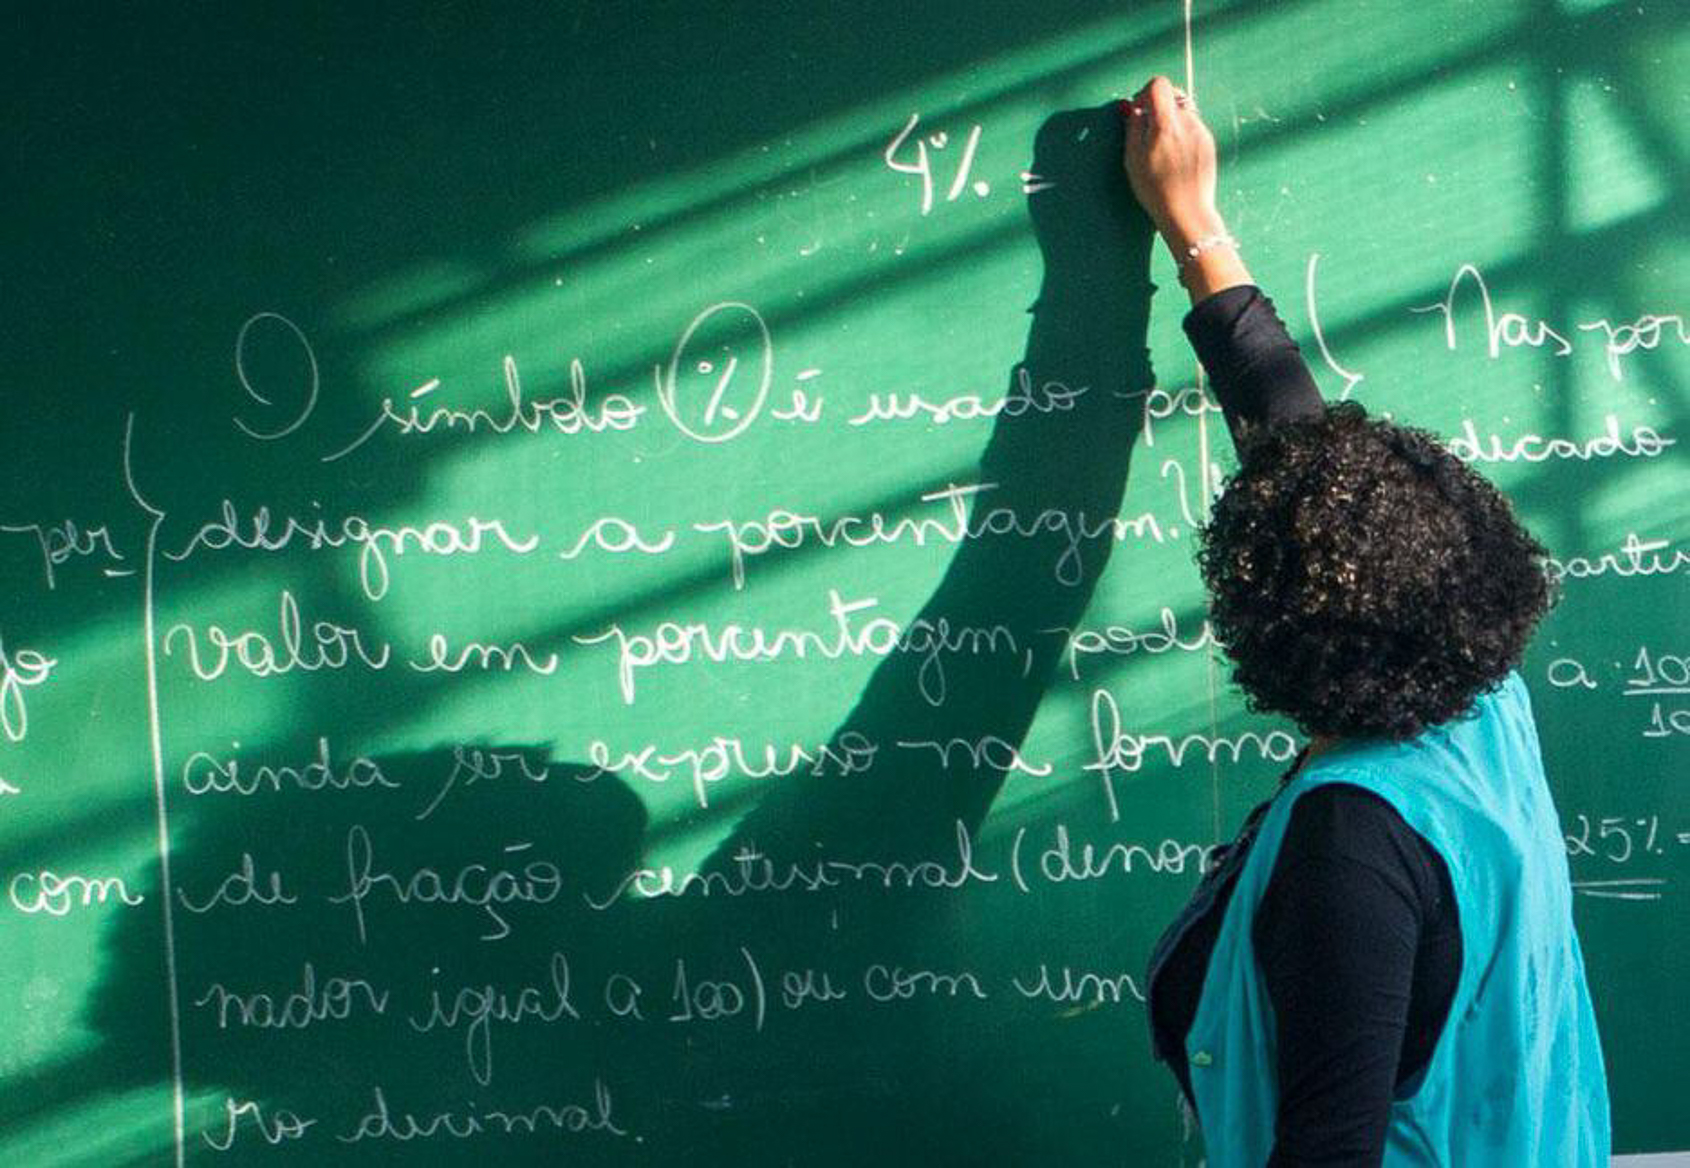 4% =
O símbolo % é usado pa
designar a porcentagem. U
valor em porcentagem, pod
ainda ser expresso na forma
de fração centesimal (denom
nador igual a 100) ou com um
ro decimal.
per
com
Nas por
dicado
partir
a 100
25% =